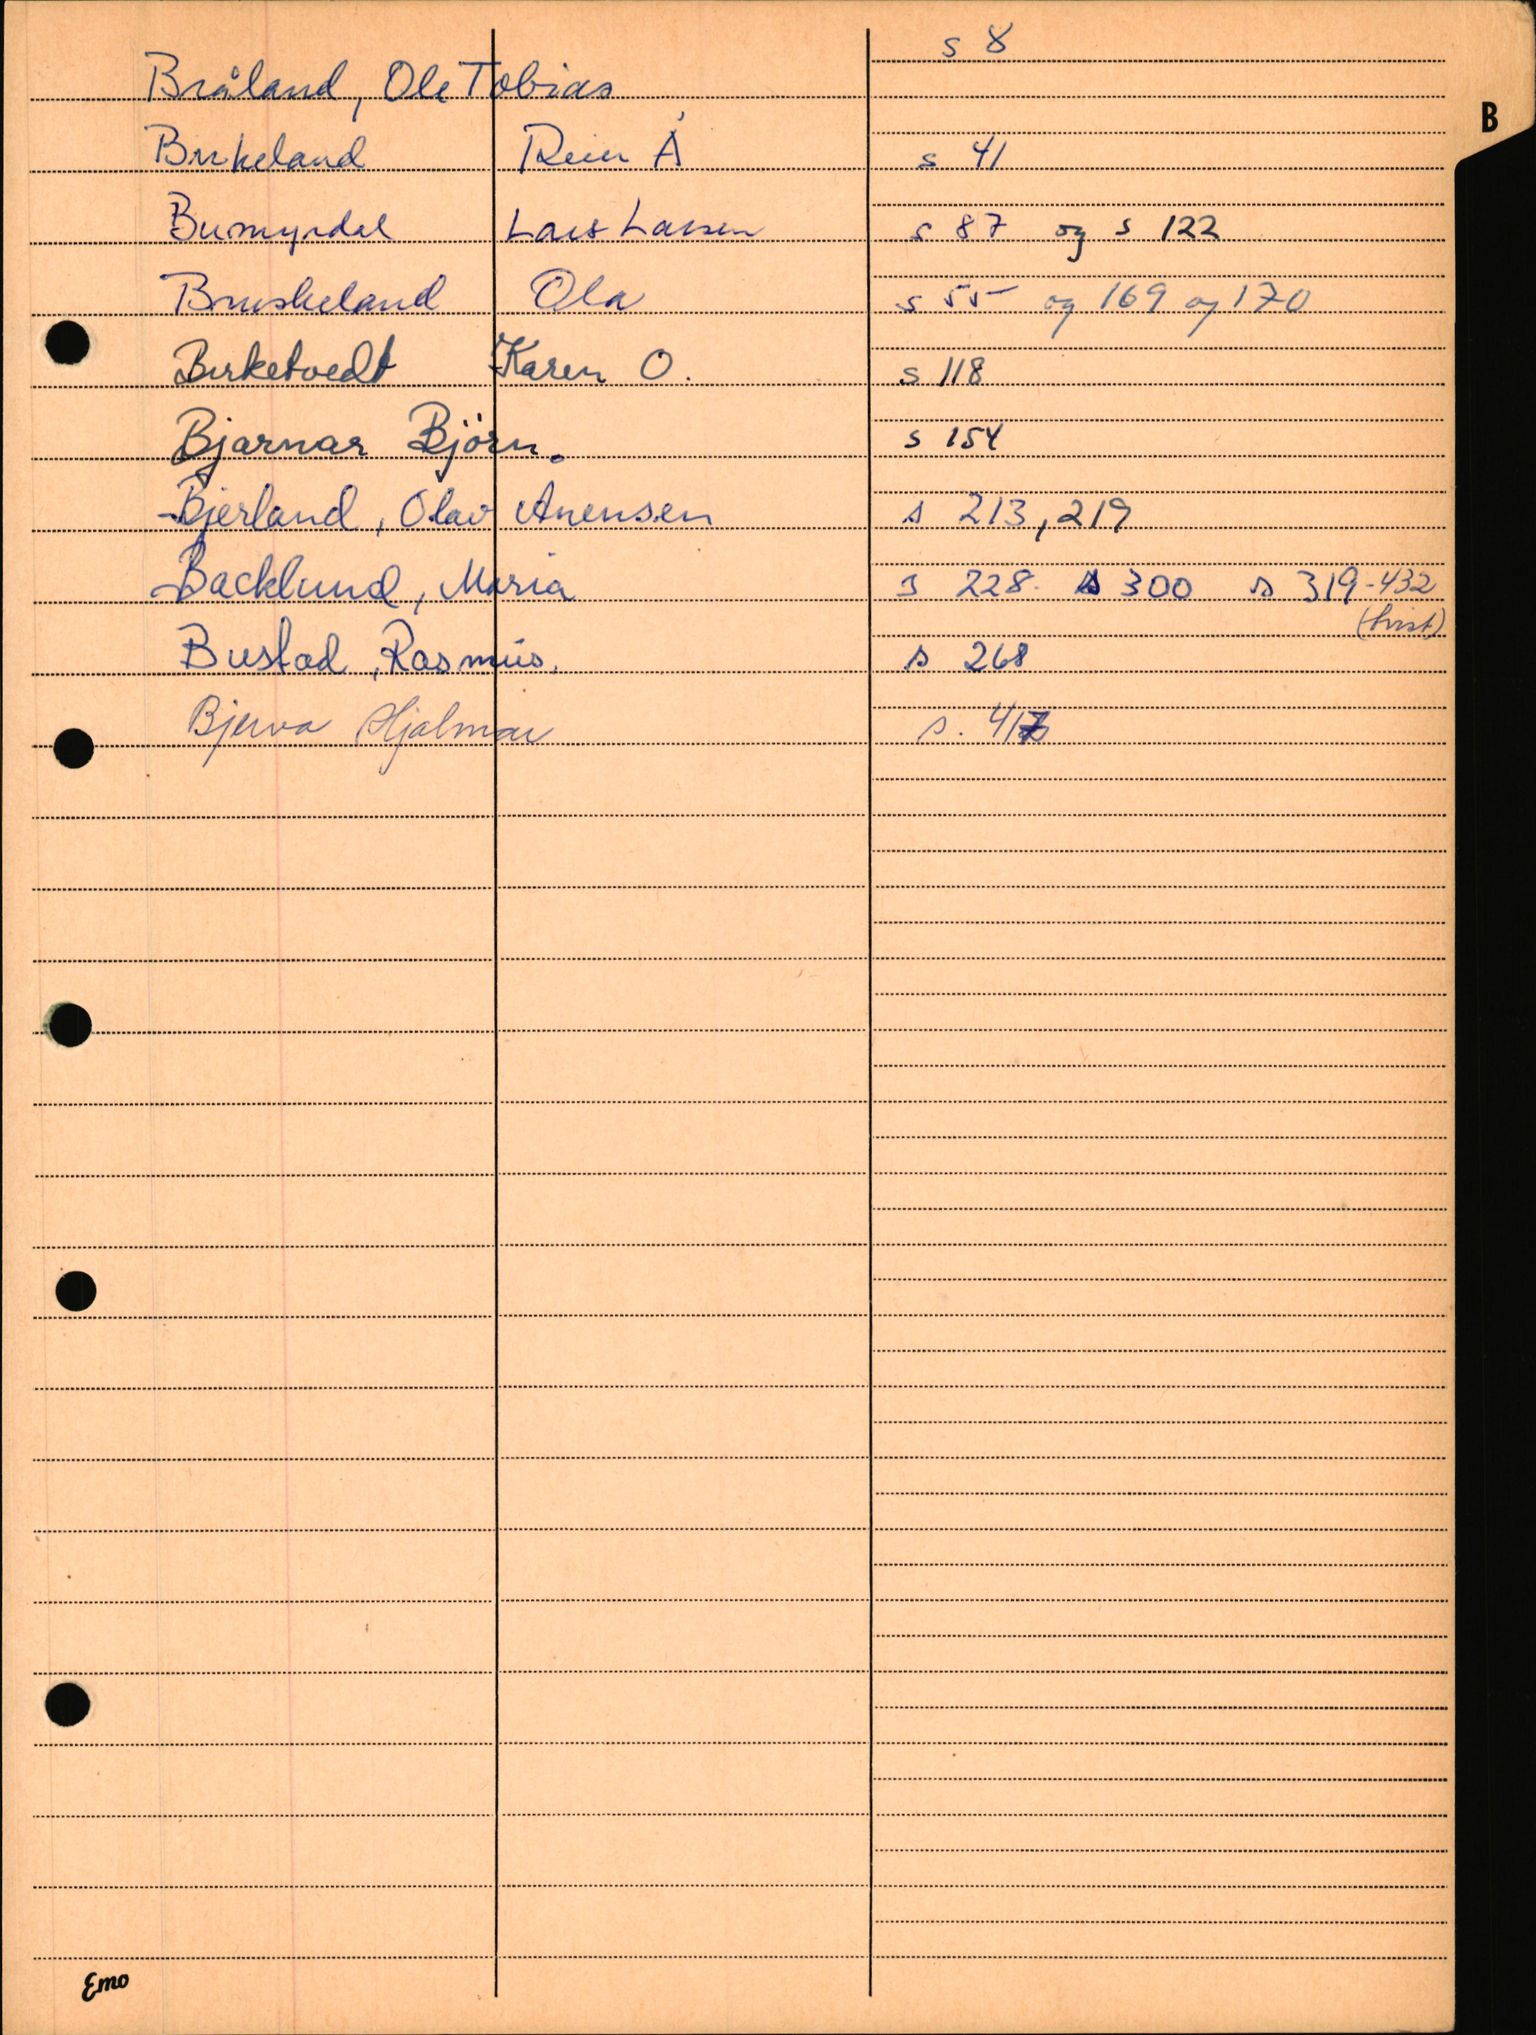 s 8
B
Bråland, Ole Tobias
Birkeland Reier Å s 41
Bumyrdal Lars Larsen s 87 og s 122
Bruskeland Ola s 55 og 169 og 170
Birketvedt Karen O. s 118
Bjarnar Björn. s 154
Bjerland, Olav Anensen s 213, 219
Backlund, Maria s 228. s 300 s 319-432
Bustad, Rasmus. s 268
Bjerva Hjalmar s. 417
Emo